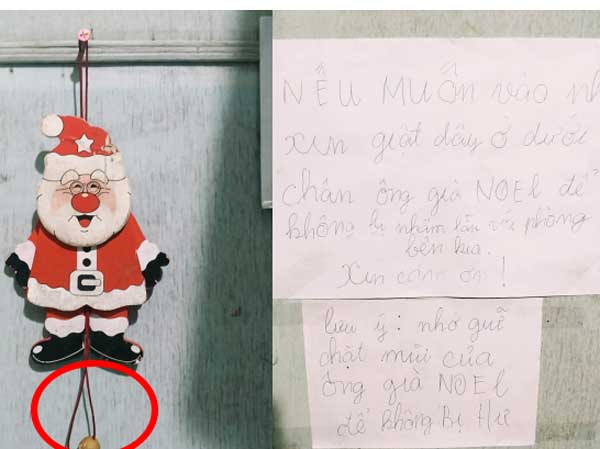 NẾU MUỐN vào nh
xin giật dây ở dưới
chân ông già NOEL để
không bị nhầm lẫn với phòng
bên kia.
Xin cảm ơn!
lưu ý: nhớ giữ
chặt mũi của
ông già NOEL
để không Bị Hư